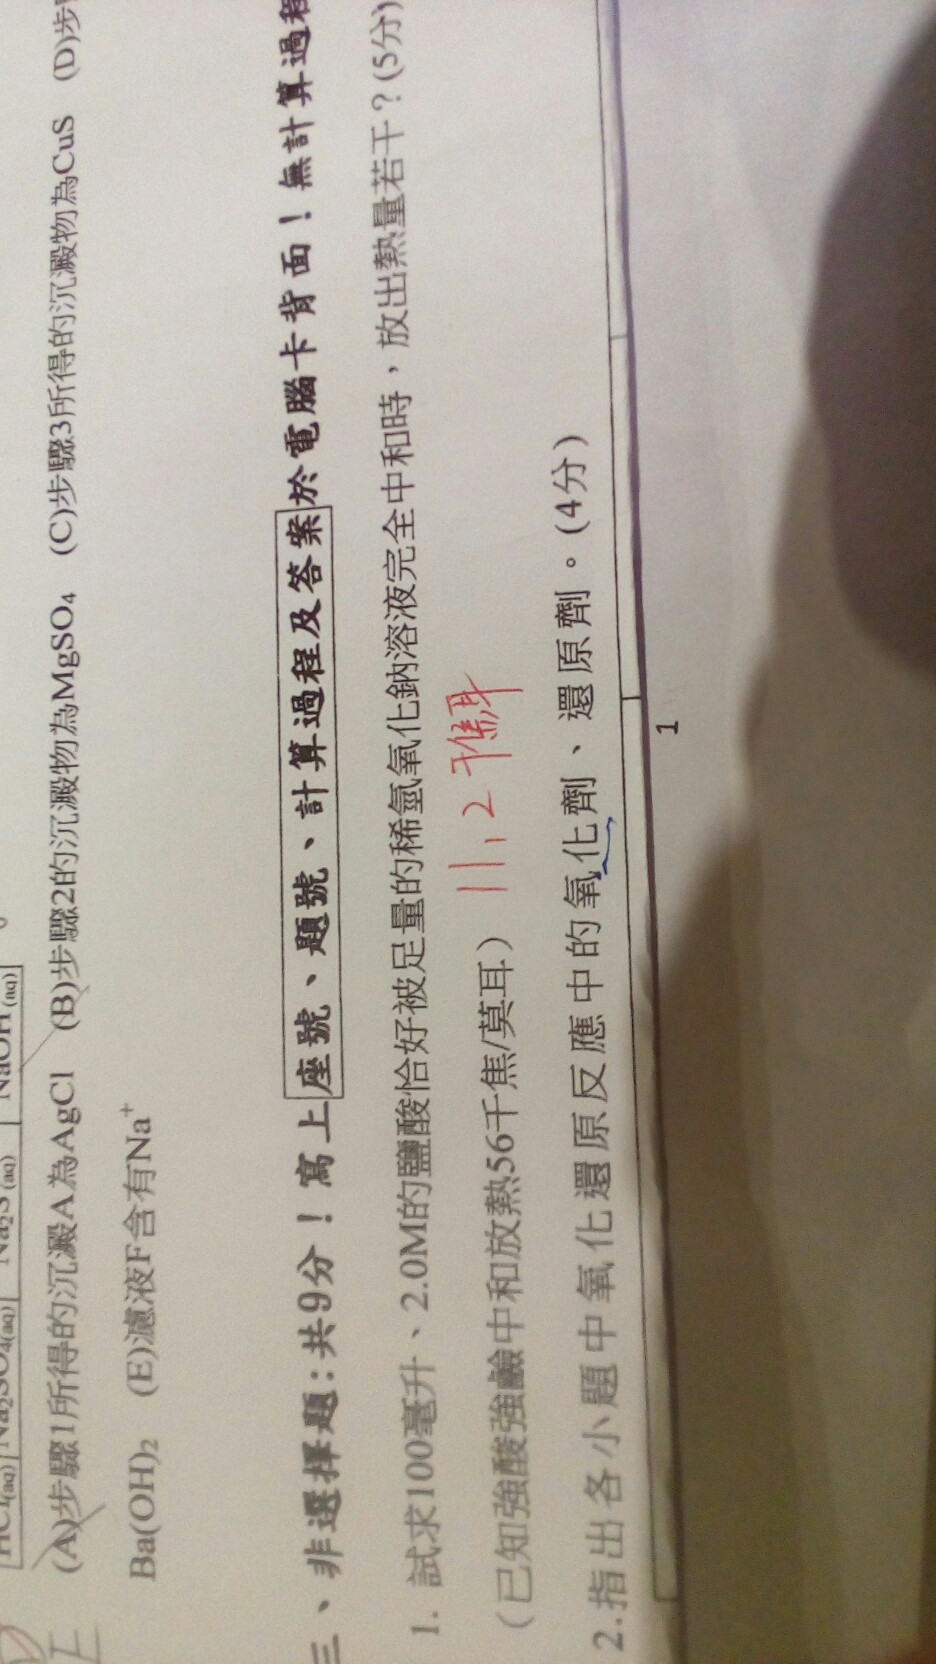 HCl(aq) Na₂SO₄(aq) Na₂S(aq) NaOH(aq)
(A)步驟1所得的沉澱A為AgCl (B)步驟2的沉澱物為MgSO₄ (C)步驟3所得的沉澱物為CuS (D)步
Ba(OH)₂ (E)濾液F含有Na⁺
三、非選擇題:共9分!寫上座號、題號、計算過程及答案於電腦卡背面!無計算過程
1. 試求100毫升、2.0M的鹽酸恰好被足量的稀氫氧化鈉溶液完全中和時,放出熱量若干?(5分)
(已知強酸強鹼中和放熱56千焦/莫耳) 11.2
2.指出各小題中氧化還原反應中的氧化劑、還原劑。(4分)
1